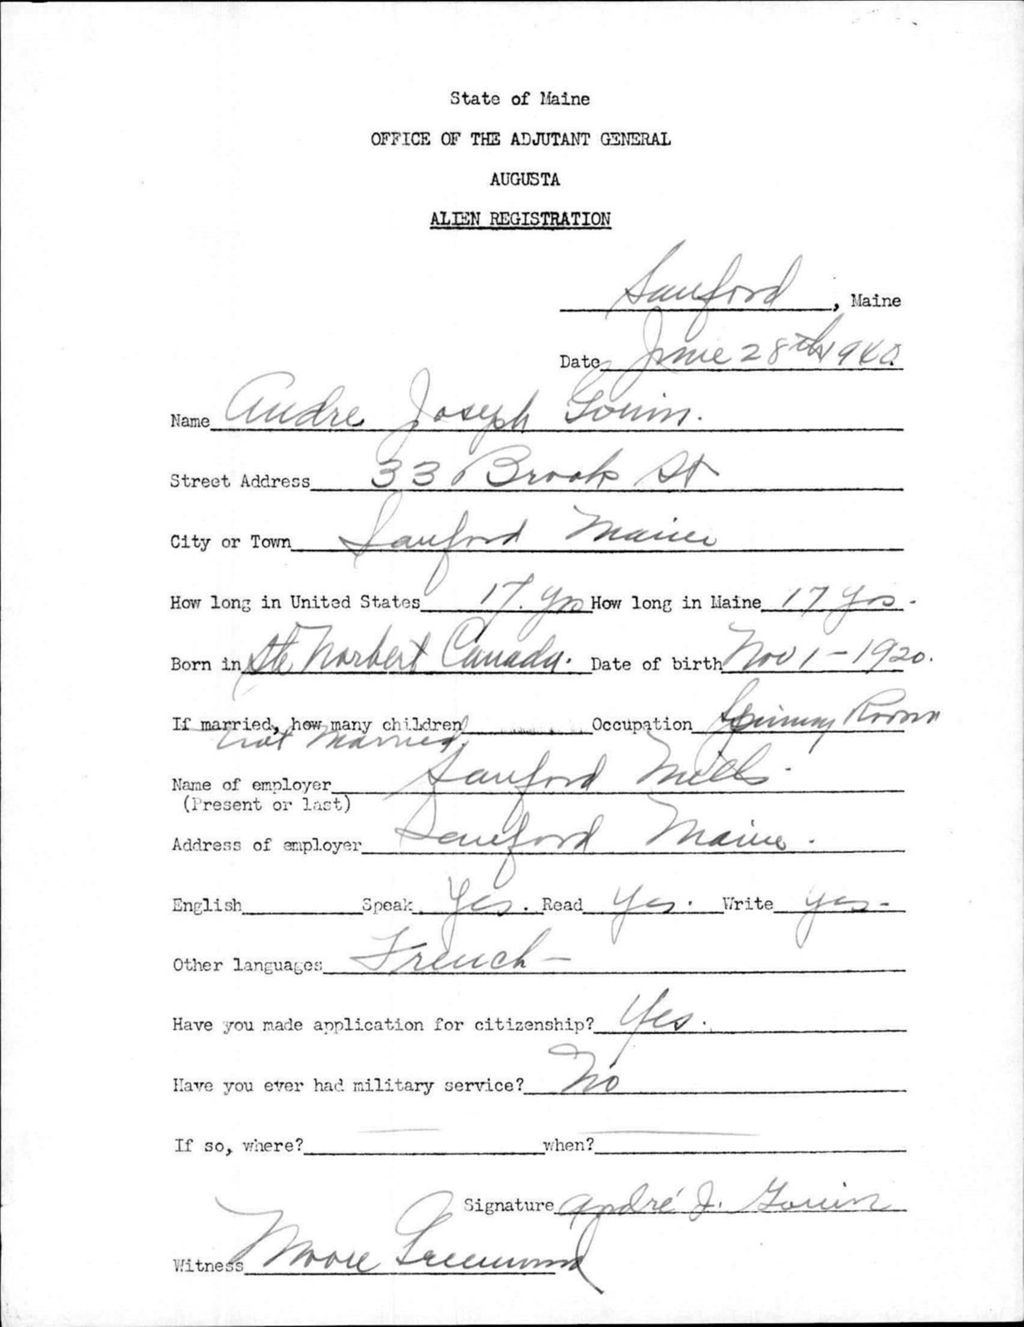 State of Maine
OFFICE OF THE ADJUTANT GENERAL
AUGUSTA
ALIEN REGISTRATION
Sanford, Maine
Date June 28th 1940
Name Andre Joseph Gouin.
Street Address 33 Brook St
City or Town Sanford Maine
How long in United States 17. yrs How long in Maine 17 yrs.
Born in Ste Norbert Canada. Date of birth Nov 1 - 1920.
If married, how many children Occupation Spinning Room
not married
Name of employer Sanford Mills.
(Present or last)
Address of employer Sanford Maine.
English Speak Yes. Read Yes. Write Yes-
Other languages French -
Have you made application for citizenship? Yes.
Have you ever had military service? No
If so, where? when?
Signature André J. Gouin
Witness Moore Greenwood